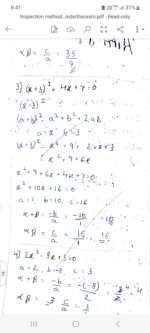 8:41
Inspection method, indertheorem.pdf - Read-only
αβ = c/a = 35/9
3] (x+3)² + 4x + 7 = 0
(x+3)²
(a+b)² = a² + b² + 2ab
a = x b = 3
(x+3)² = x² + 9 + 2×x×3
x² + 9 + 6x
x² + 9 + 6x + 4x + 7 = 0
x² + 10x + 16 = 0
a = 1, b = 10, c = 16
α+β = -b/a = -10/1 = -10
αβ = c/a = 16/1 = 16
4) 2x² - 8x + 3 = 0
a = 2, b = -8, c = 3
α+β = -b/a = -(-8)/2
αβ = c/a = 3/2